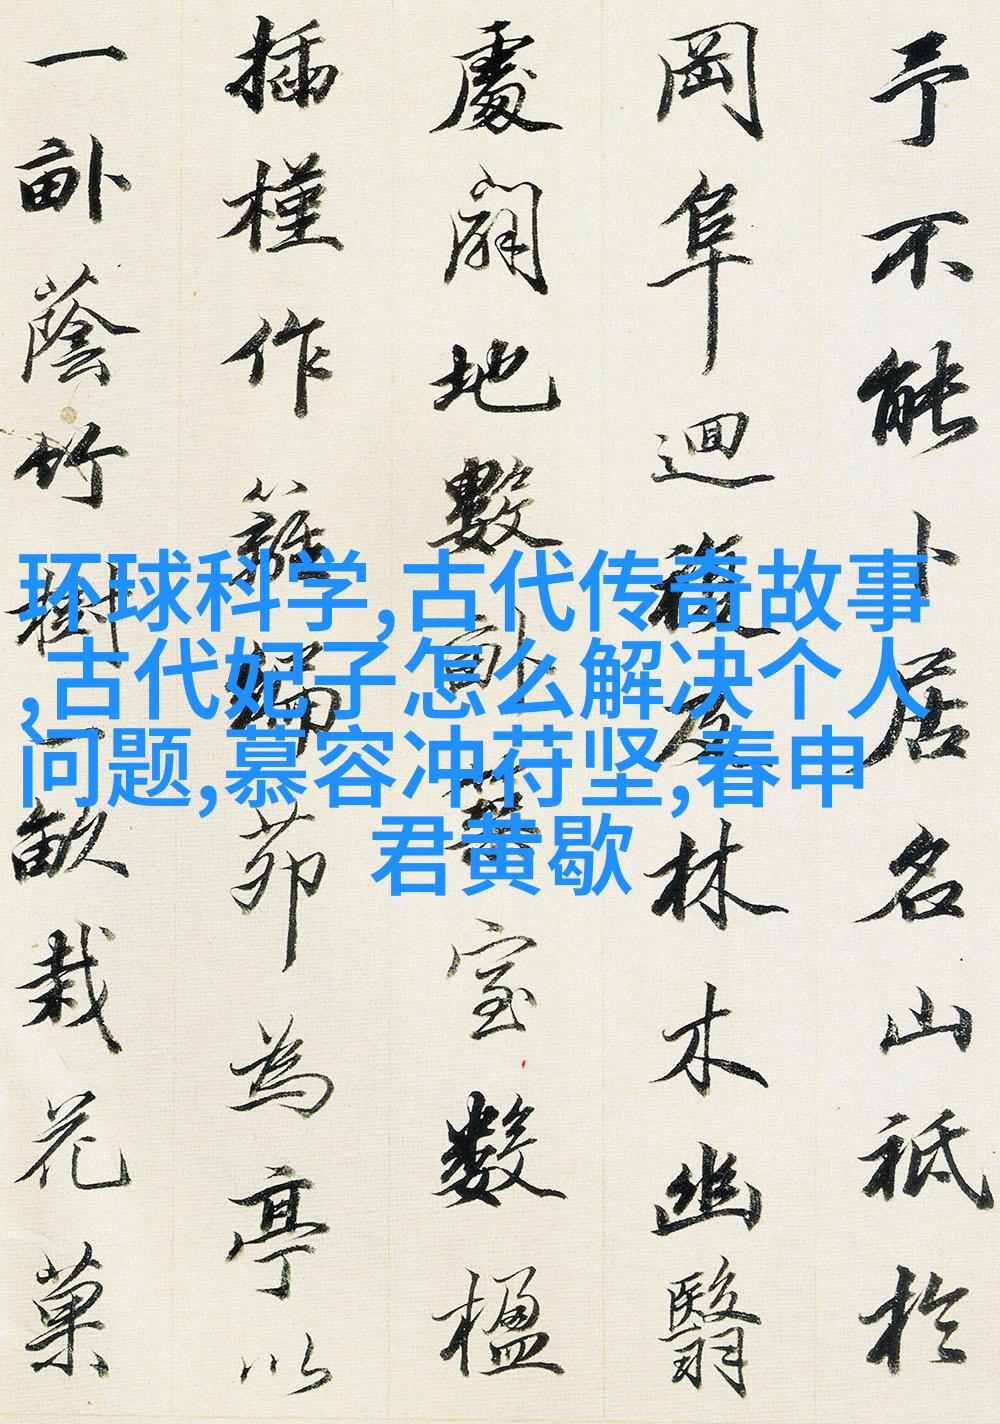 予不能卜居名山祗於
岡阜迴複及林木幽翳
處闢地數畝築室數楹
插槿作籬編茆為亭以
一畝蔭竹樹一畝栽花菓
环球科学,古代传奇故事
,古代妃子怎么解决个人
问题,慕容冲苻坚,春申
君黄歇